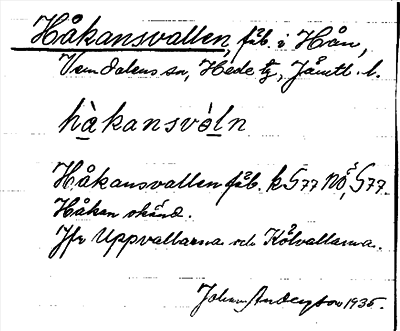 Håkansvallen, fäb. i Hån,
Vemdalens sn, Hede tg, Jämtl. l.
hàkansvòln
Håkansvallen fäb. k G77 NÖ, G77.
Håken okänd.
Jfr Uppvallarna och Kölvallarna.
Johan Anderzson 1935.